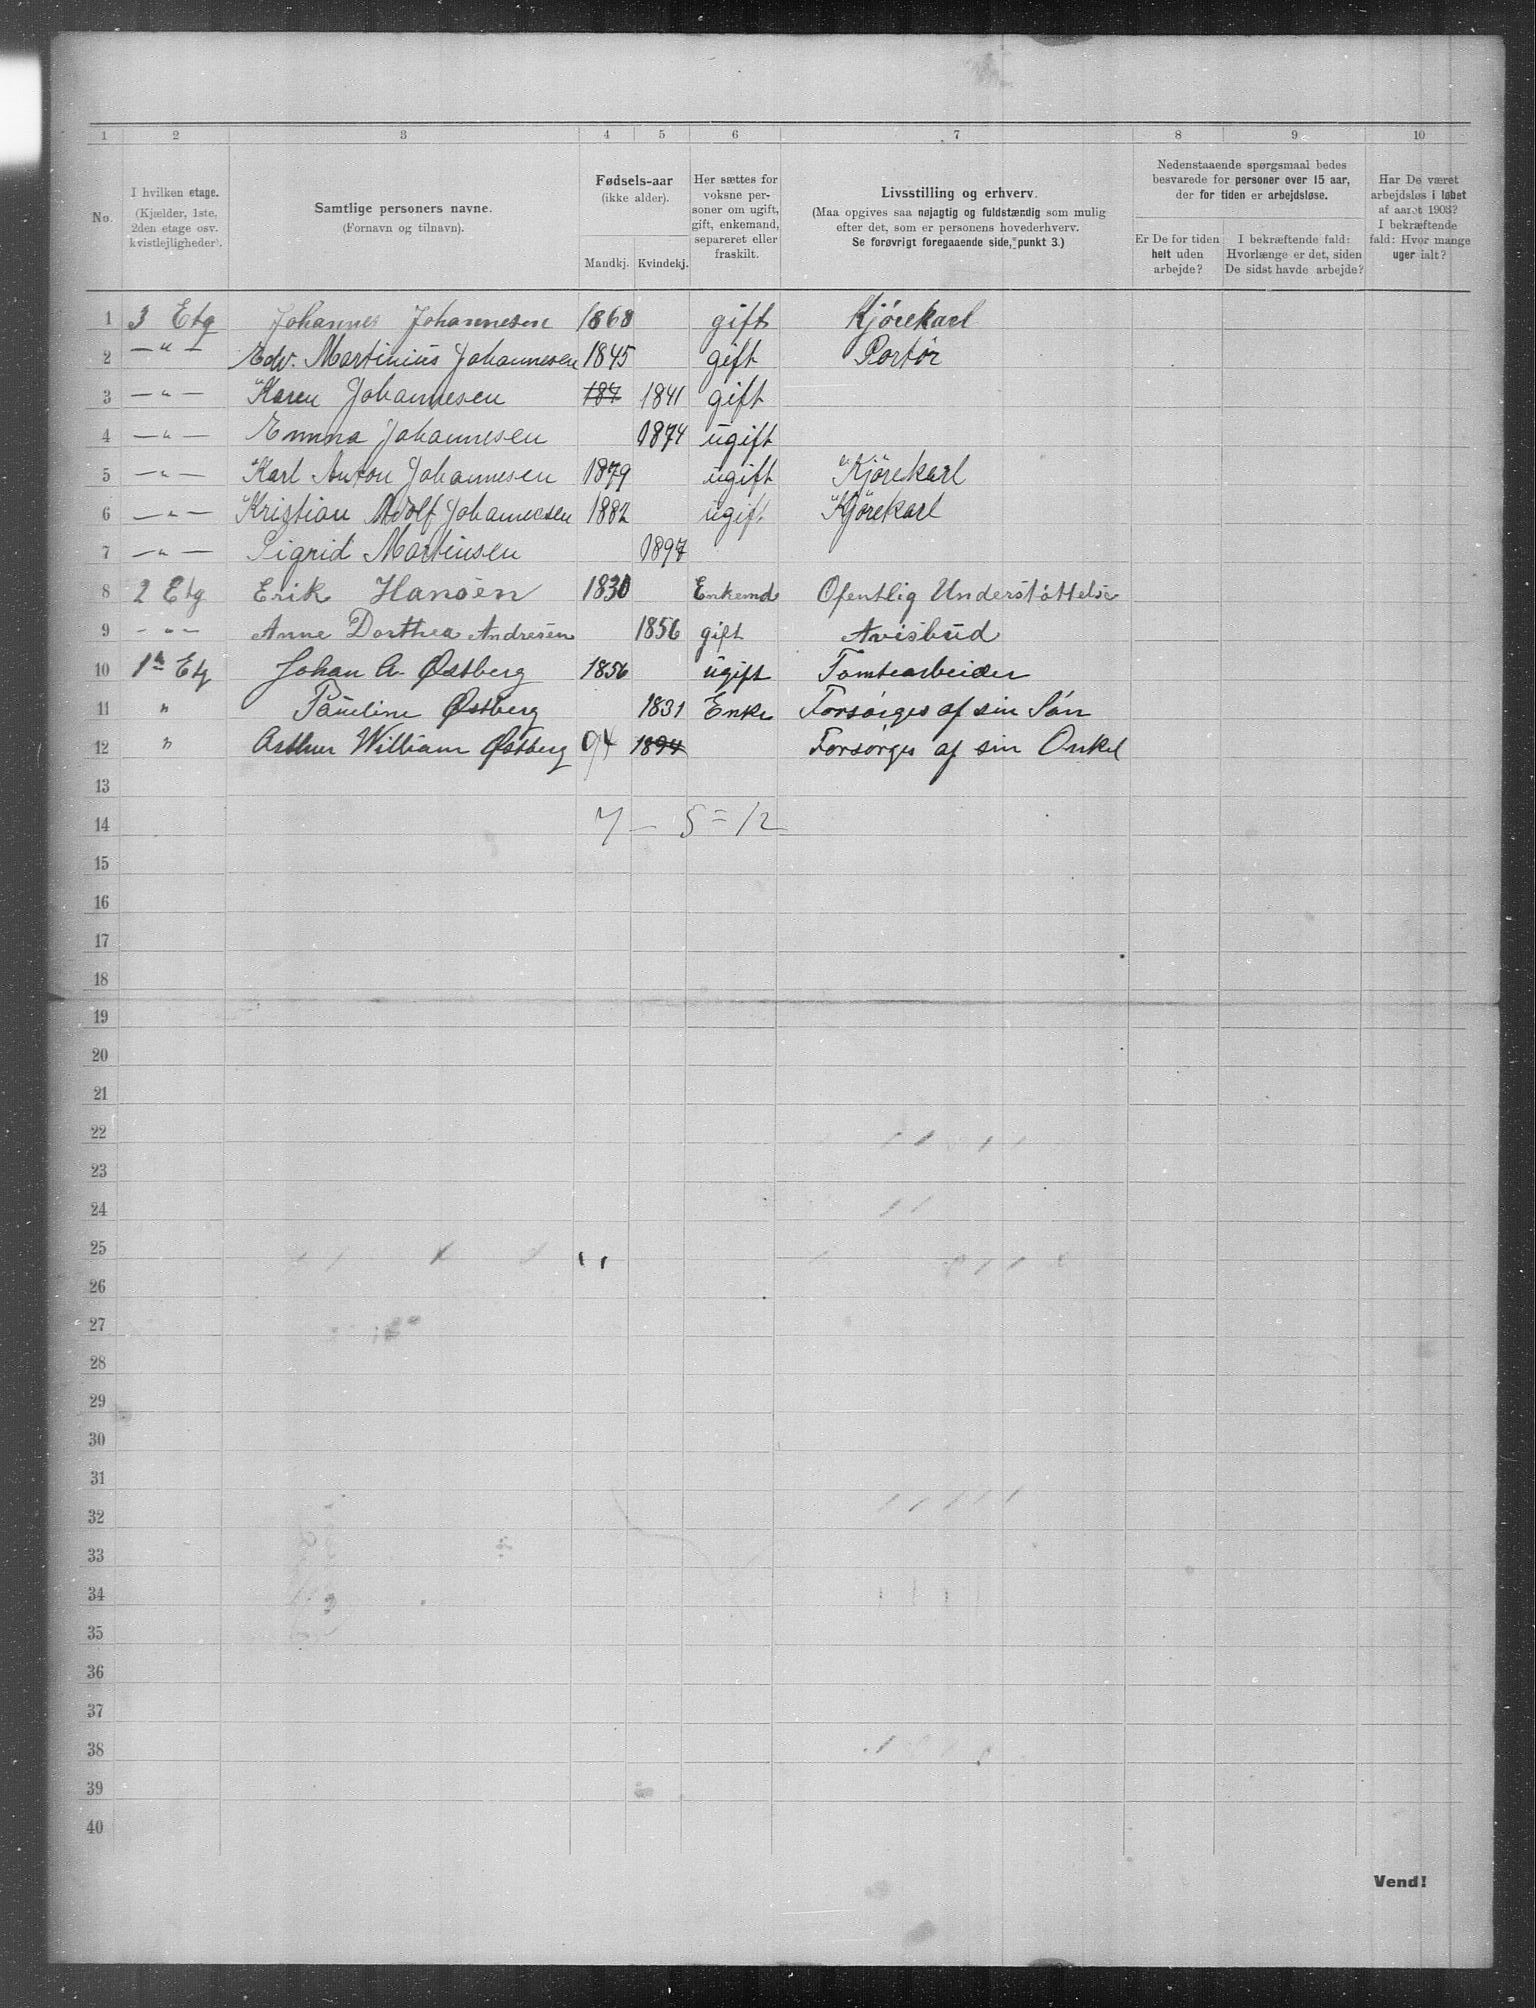 1 2 3 4 5 6 7 8 9 10
No.
I hvilken etage.
(Kjælder, 1ste,
2den etage osv.
kvistlejligheder).
Samtlige personers navne.
(Fornavn og tilnavn).
Fødsels-aar
(ikke alder).
Mandkj. Kvindekj.
Her sættes for
voksne per-
soner om ugift,
gift, enkemand,
separeret eller
fraskilt.
Livsstilling og erhverv.
(Maa opgives saa nøjagtig og fuldstændig som mulig
efter det, som er personens hovederhverv.
Se forøvrigt foregaaende side, punkt 3.)
Nedenstaaende spørgsmaal bedes
besvarede for personer over 15 aar,
der for tiden er arbejdsløse.
Er De for tiden
helt uden
arbejde?
I bekræftende fald:
Hvorlænge er det, siden
De sidst havde arbejde?
Har De været
arbejdsløs i løbet
af aaret 1903?
I bekræftende
fald: Hvor mange
uger ialt?
1 3 Etg Johannes Johannesen 1868 gift Kjørekarl
2 — " — Edv. Martinius Johannesen 1845 gift Portör
3 — " — Karen Johannesen 187 1841 gift
4 — " — Emma Johannesen 1874 ugift
5 — " — Karl Anton Johannesen 1879 ugift Kjørekarl
6 — " — Kristian Adolf Johannesen 1882 ugift Kjørekarl
7 — " — Sigrid Martinsen 1897
8 2 Etg Erik Hansen 1830 Enkemd Ofentlig Understøttelse
9 - " - Anne Dorthea Andresen 1856 gift Avisbud
10 1ste Etg Johan A. Østberg 1856 ugift Tomtearbeider
11 " Pauline Østberg 1831 Enke Forsørges af sin Søn
12 " Arthur William Østberg 94 1894 Forsørges af sin Onkel
13
14 7 — 5 = 12
15
16
17
18
19
20
21
22
23
24
25
26
27
28
29
30
31
32
33
34
35
36
37
38
39
40
Vend!